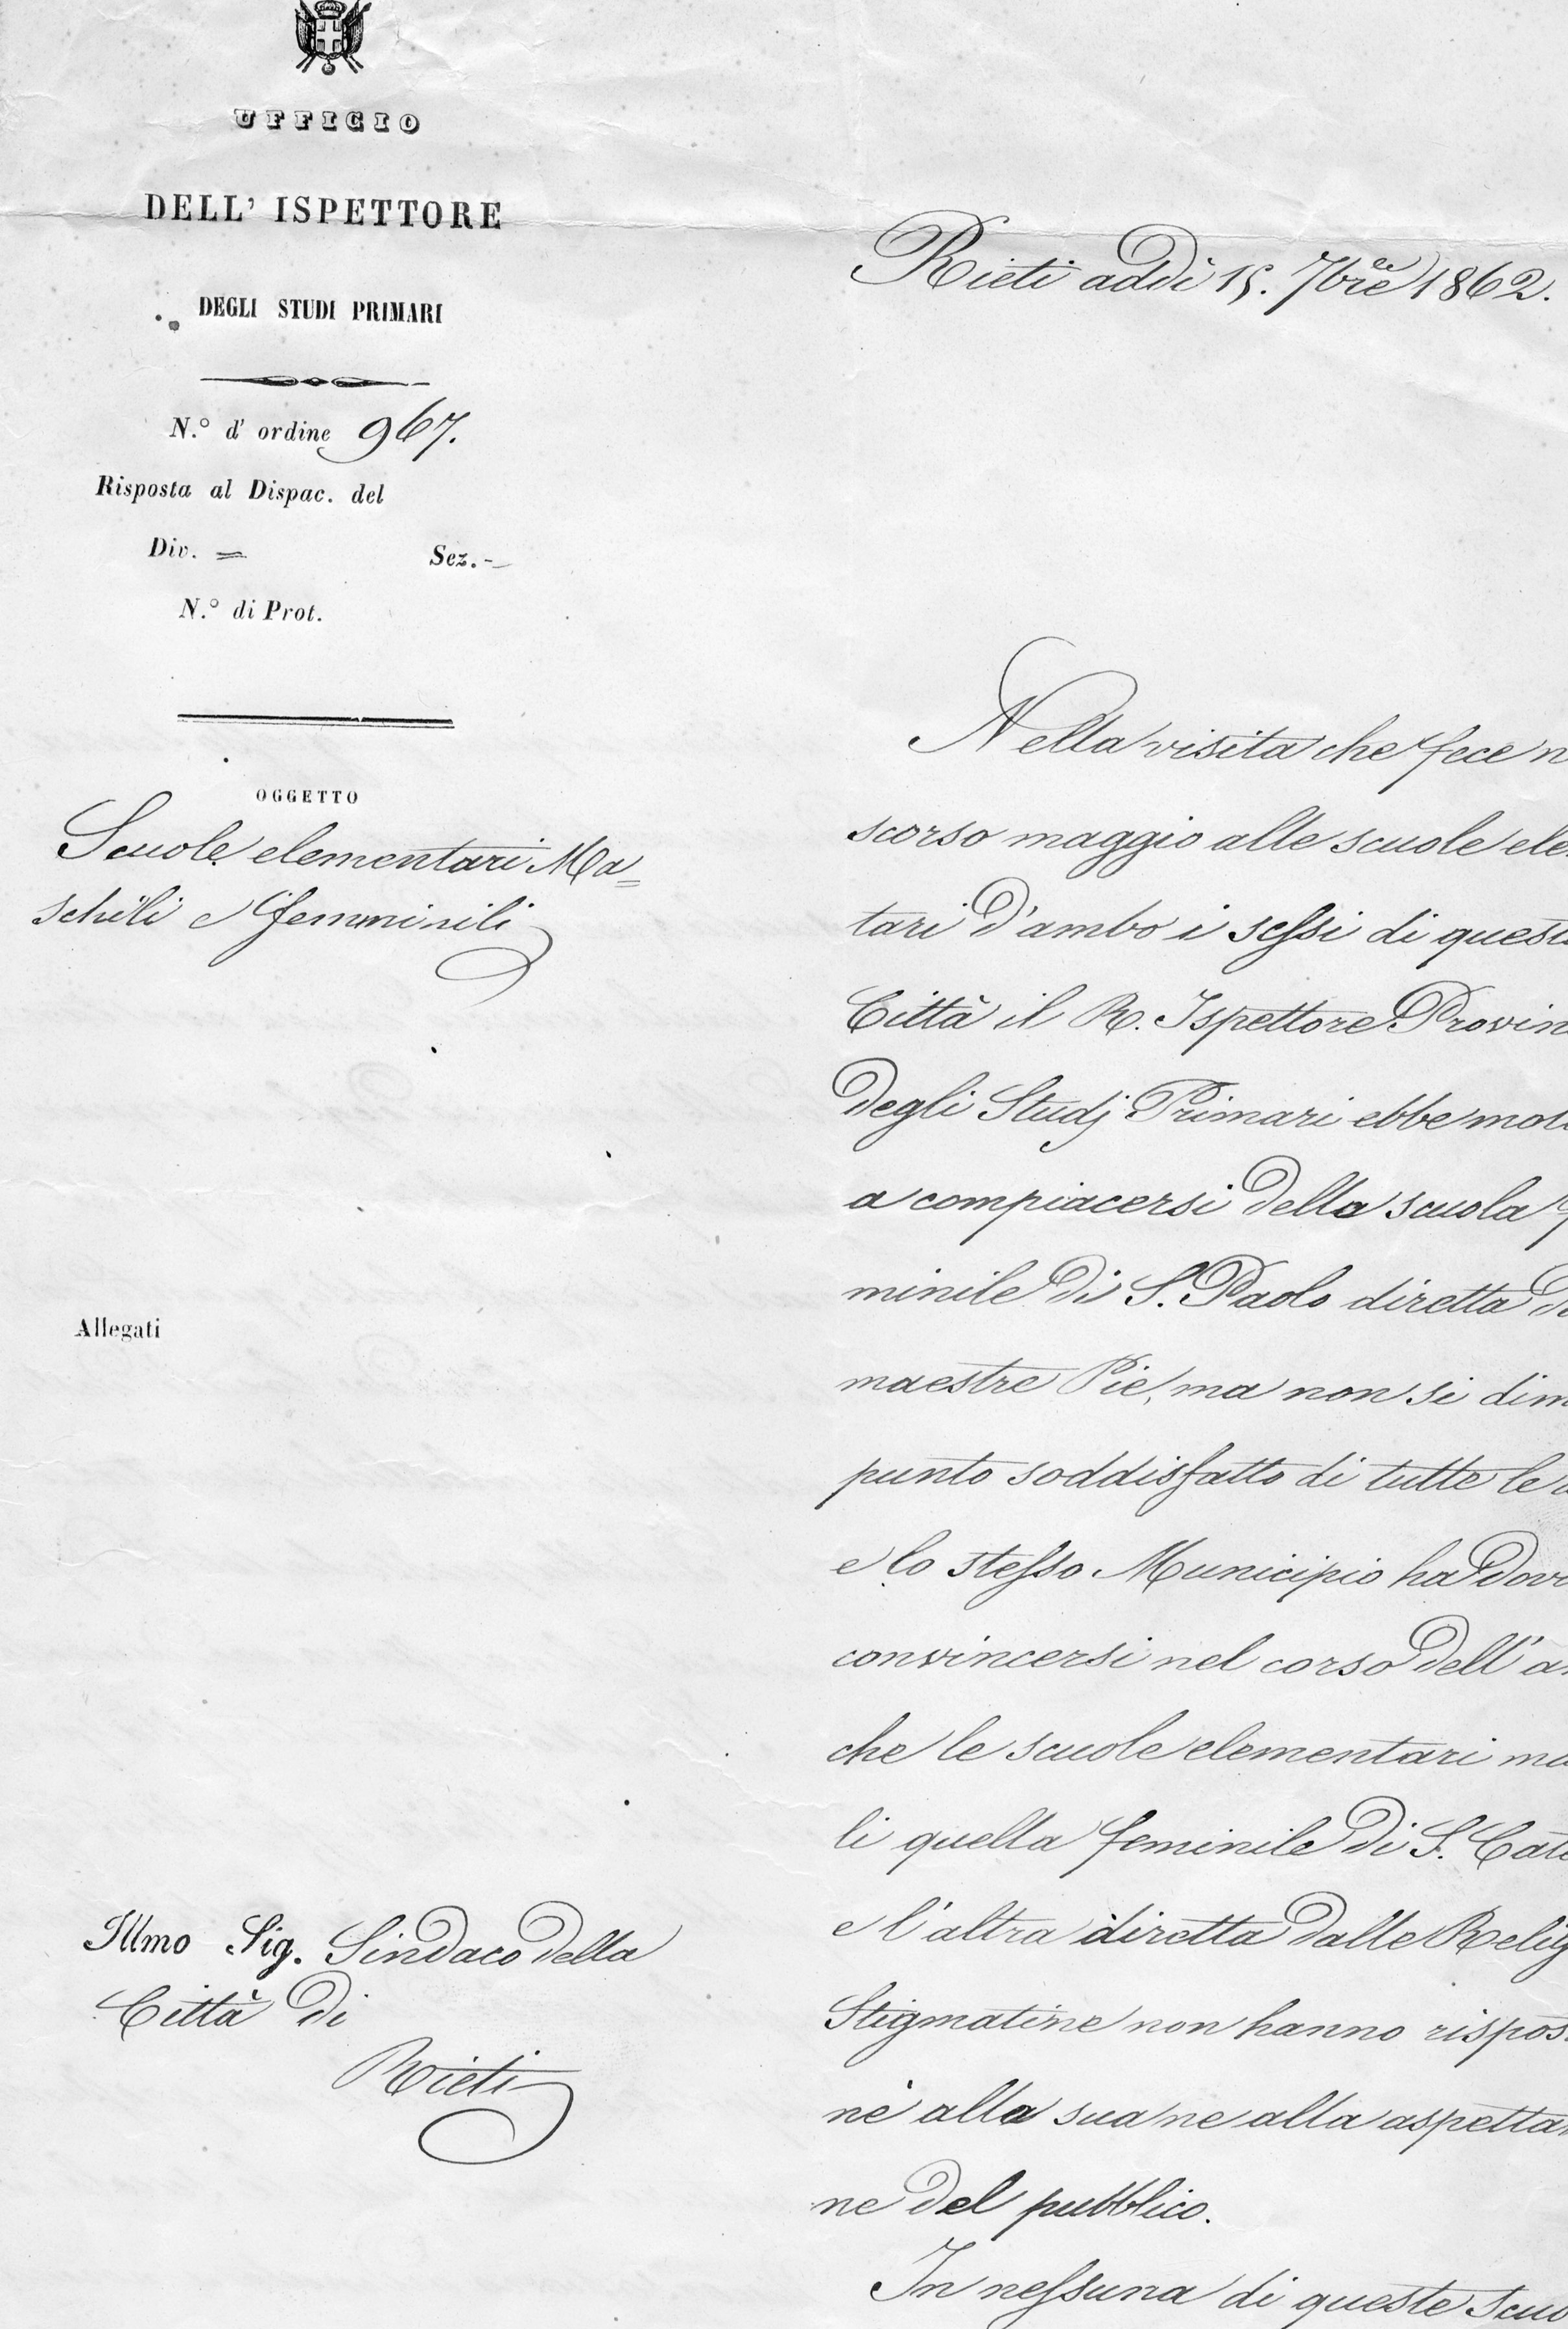 UFFICIO
DELL' ISPETTORE
DEGLI STUDI PRIMARI
N.° d' ordine 967.
Risposta al Dispac. del
Div. = Sez. -
N.° di Prot.
OGGETTO
Scuole elementari Ma=
schili e femminili
Allegati
Illmo Sig. Sindaco della
Città di
Rieti
Rieti addì 15. 7bre 1862.
Nella visita che fece n
scorso maggio alle scuole ele
tari d'ambo i sessi di quest
Città il R. Ispettore Provin
degli Studj Primari ebbe mot
a compiacersi della scuola f
minile di S. Paolo diretta d
maestre Pie, ma non si dim
punto soddisfatto di tutte le a
e lo stesso Municipio ha dov
convincersi nel corso dell' a
che le scuole elementari ma
li quella feminile di S. Cat
e l'altra diretta dalle Relig
Stigmatine non hanno rispos
nè alla sua ne alla aspetta
ne del pubblico.
In nessuna di queste scuo